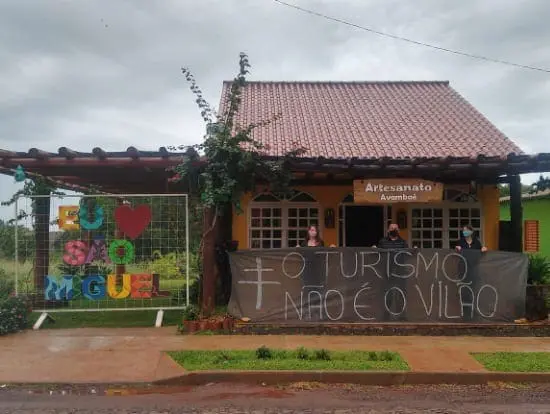 EU ❤
SÃO
MIGUEL
Artesanato
Avambaé
O TURISMO
NÃO É O VILÃO